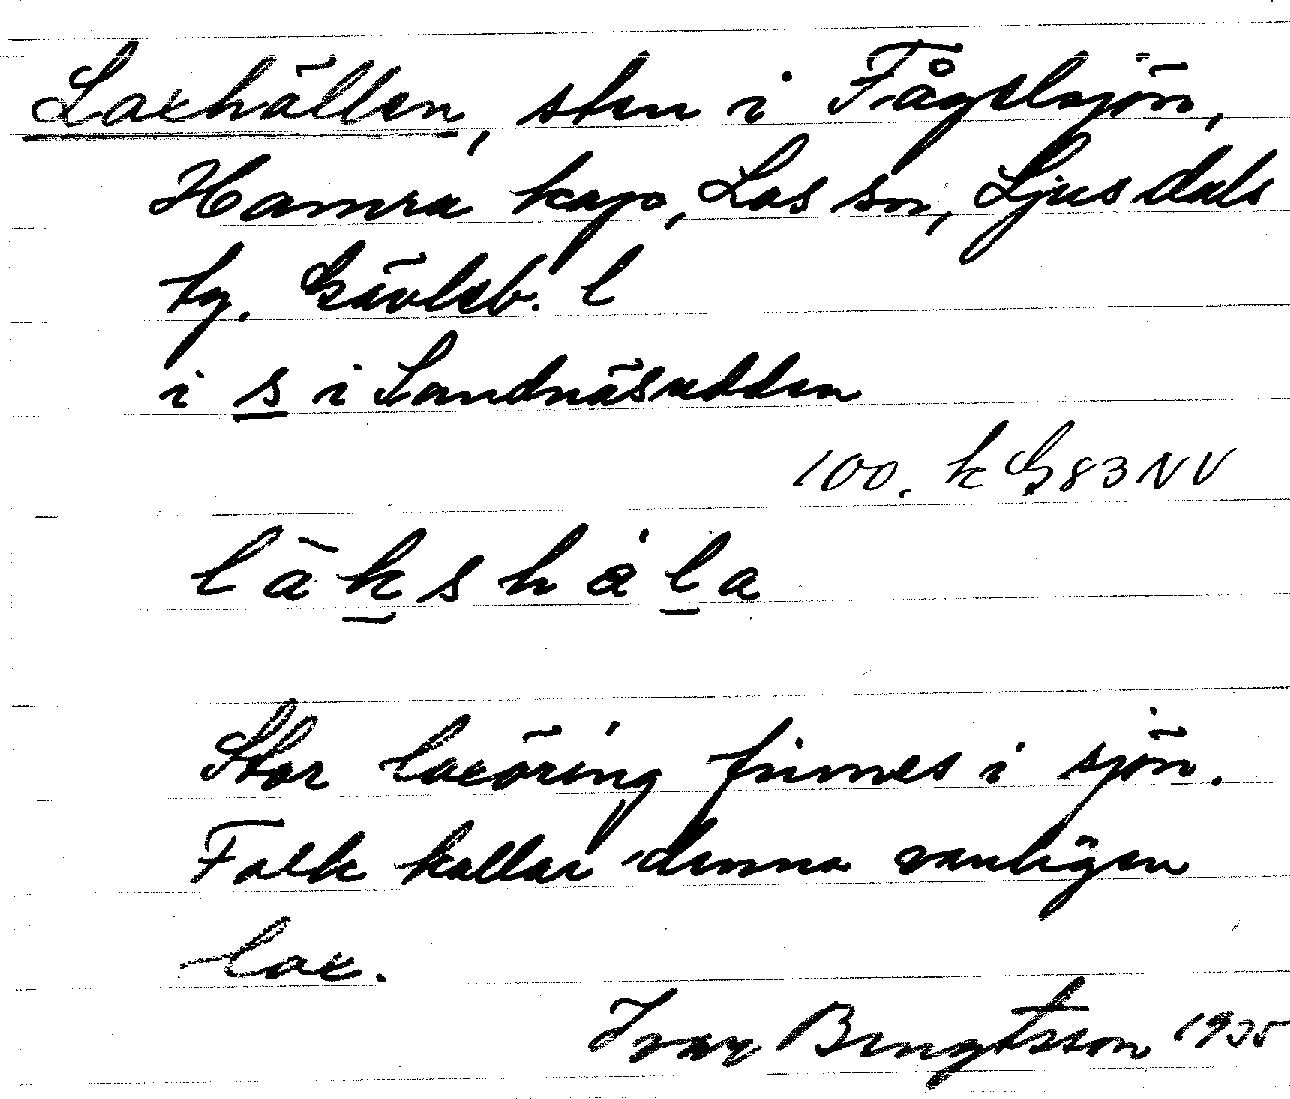 Laxhällen, sten i Fågelsjön,
Hamra kap, Los sn, Ljusdals
tg. Gävleb. l
i s i Sandnäsudden
100. k G83NV
läkshåla
Stor laxöring finnes i sjön.
Folk kallar denna vanligen
lax.
Ivar Bengtsson 1935